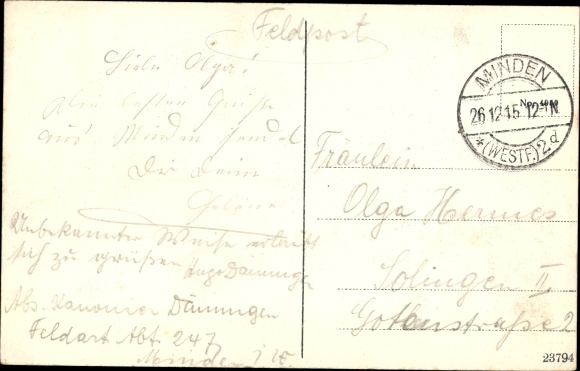 Feldpost
Liebe Olga!
Die besten Grüße
aus Minden sendet
Dir Deine
Helene
Unbekannter Weise erlaubt
sich zu grüßen Hugo Danninger
Abs. Kanonier Danningen
Feldart Abt. 247
Minden i W.
MINDEN
26.12.15.12-1N
*(WESTF.)2d
Fräulein
Olga Hermes
Solingen II
Gotenstraße 2
23794